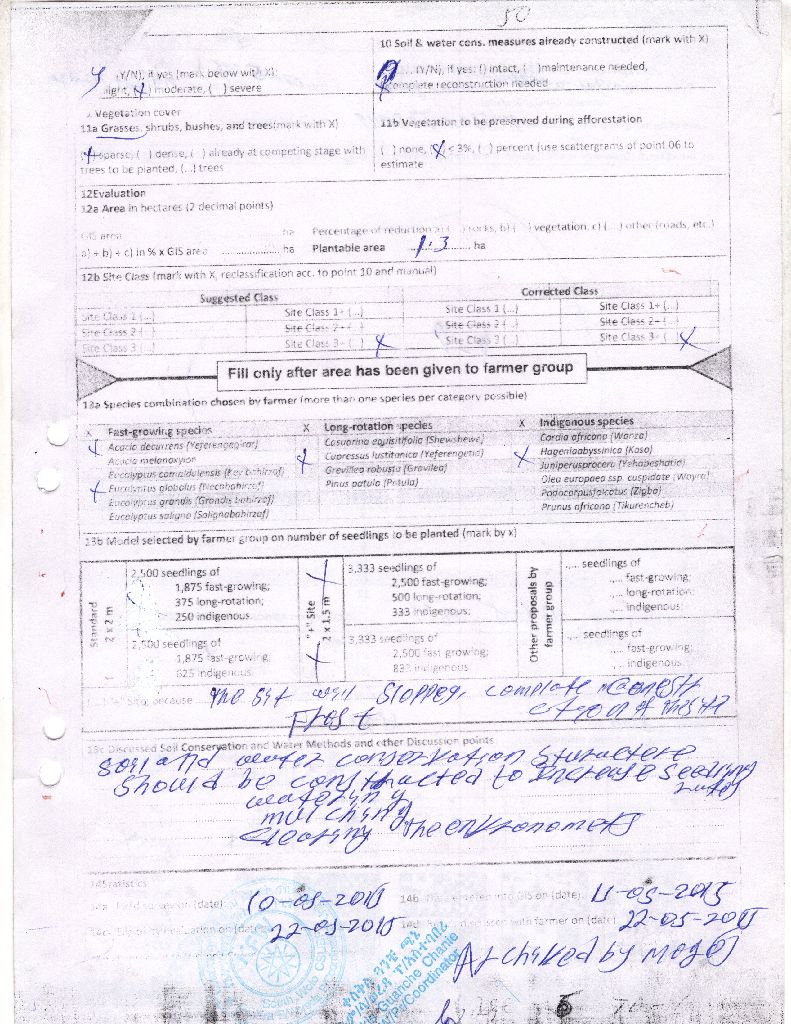 50
10 Soil & water cons. measures already constructed (mark with X)
y (Y/N), if yes (mark below with X):
(Y/N), if yes: () intact, ( )maintenance needed,
(X) moderate, ( ) severe
complete reconstruction needed
Vegetation cover
11a Grasses, shrubs, bushes, and trees(mark with X)
11b Vegetation to be preserved during afforestation
(X) sparse, ( ) dense, ( ) already at competing stage with
trees to be planted, (...) trees
( ) none, (X) < 3%, ( ) percent (use scattergrams of point 06 to
estimate
12Evaluation
12a Area in hectares (2 decimal points)
GIS area ha Percentage of reduction a) ( ) rocks, b) ( ) vegetation, c) (...) other (roads, etc.)
a) + b) + c) in % x GIS area ................ ha Plantable area ....1.3...... ha
12b Site Class (mark with X, reclassification acc. to point 10 and manual)
Suggested Class Corrected Class
Site Class 1 (...) Site Class 1+ (...) Site Class 1 (...) Site Class 1+ (...)
Site Class 2 (...) Site Class 2+ (...) Site Class 2 (...) Site Class 2+ (...)
Site Class 3 (...) Site Class 3+ ( X Site Class 3 (...) Site Class 3+ ( X
Fill only after area has been given to farmer group
13a Species combination chosen by farmer (more than one species per category possible)
X Fast-growing species X Long-rotation species X Indigenous species
X Acacia decurrens (Yeferengagirar) Casuarina equisitifolia (Shewshewe) Cordia africana (Wanza)
Acacia melanoxylon X Cupressus lustitanica (Yeferengetid) X Hageniaabyssinica (Koso)
Eucalyptus camaldulensis (Key bahirzaf) Grevillea robusta (Gravilea) Juniperusprocera (Yehabeshatid)
X Eucalyptus globulus (Nechbahirzaf) Pinus patula (Patula) Olea europaea ssp. cuspidate (Wayra)
Eucalyptus grandis (Grandis bahirzaf) Podocarpusfalcatus (Zigba)
Eucalyptus saligna (Salignabahirzaf) Prunus africana (Tikurencheb)
13b Model selected by farmer group on number of seedlings to be planted (mark by x)
Standard
2 x 2 m
2,500 seedlings of
1,875 fast-growing;
375 long-rotation;
250 indigenous
2,500 seedlings of
1,875 fast-growing;
625 indigenous
X
"+" Site
2 x 1,5 m
X
3,333 seedlings of
2,500 fast-growing;
500 long-rotation;
333 indigenous;
3,333 seedlings of
2,500 fast growing;
833 indigenous
Other proposals by
farmer group
..... seedlings of
.... fast-growing;
.... long-rotation;
.... indigenous;
.... seedlings of
.... fast-growing;
.... indigenous
Site, because the sit will slopped, complete
of
13c Discussed Soil Conservation and Water Methods and other Discussion points
soil and water conservation sturacture
should be constracted to Increase seedling
watering
mulching
clearing
14Statistics
(date) 10-05-2015 14b GIS on (date) 11-05-2015
evaluation on (date) 22-05-2015 with farmer on (date) 22-05-2015
Archived by
Guanche Chanie
Coordinator